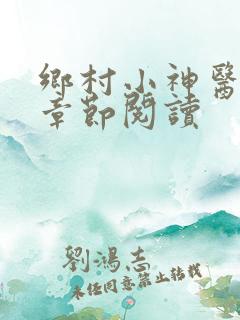 鄉村小神醫
章節閱讀
劉鴻志
未经同意禁止转载